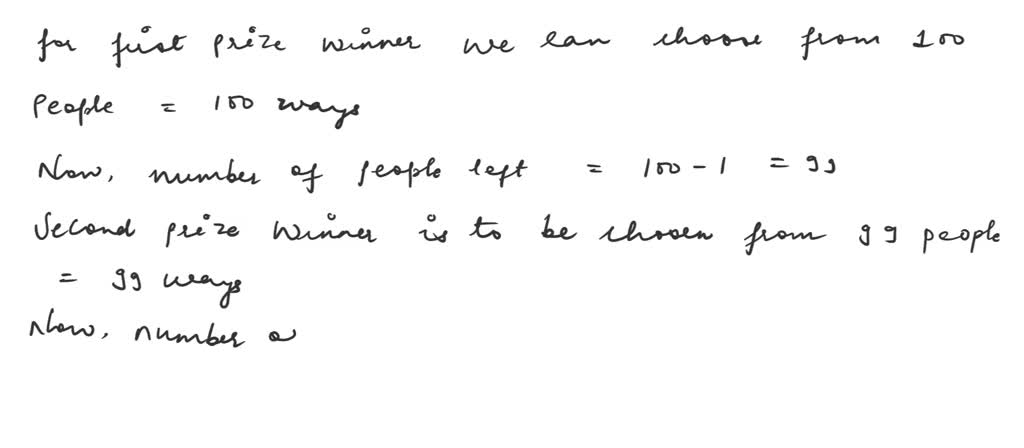 for first prize winner we can choose from 100
People = 100 ways
Now, number of people left = 100 - 1 = 99
Second prize winner is to be chosen from 99 people
= 99 ways
Now, number o